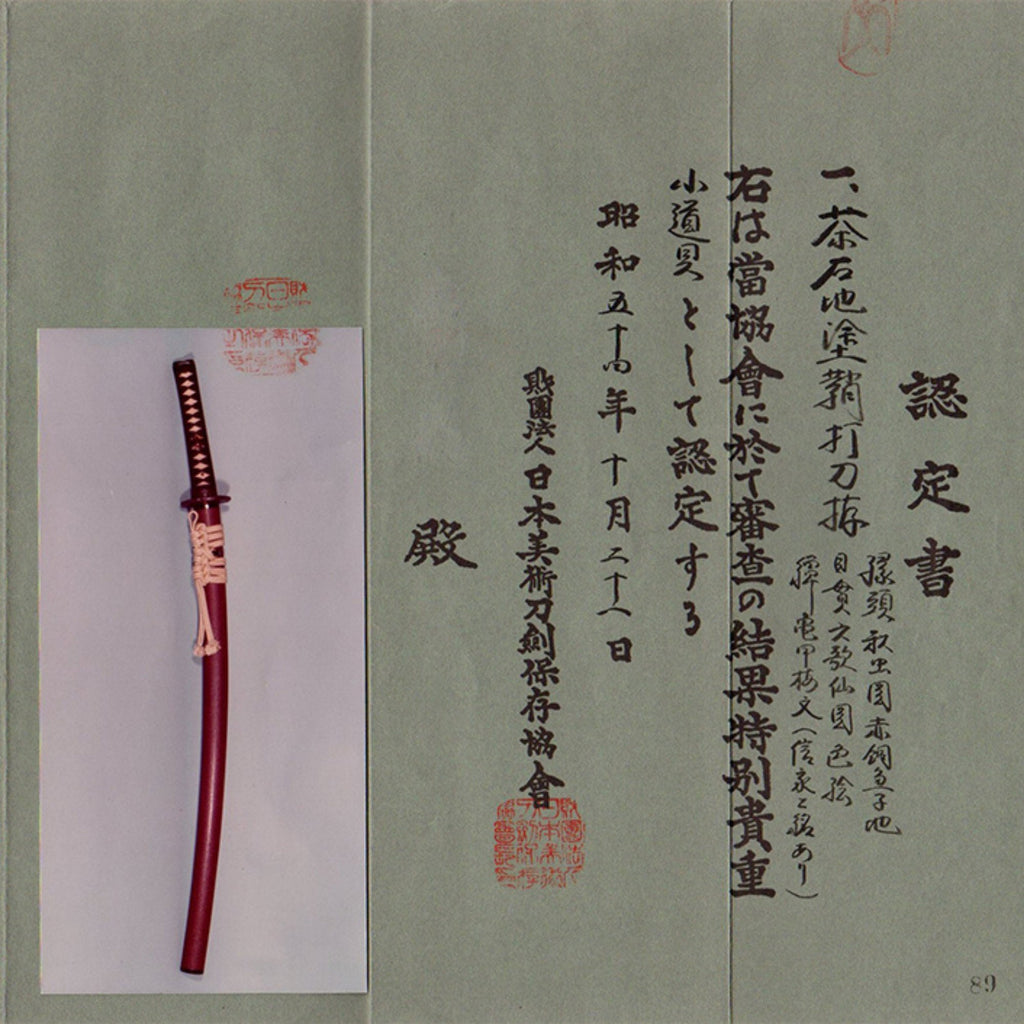 認定書
一、茶石地塗鞘打刀拵
縁頭 秋虫図赤銅魚子地
目貫 六歌仙図色絵
鐔 亀甲梅文(信家ト銘あり)
右は當協會に於て審査の結果特別貴重
小道具として認定する
昭和五十四年十月二十八日
財團法人日本美術刀劍保存協會
殿
89